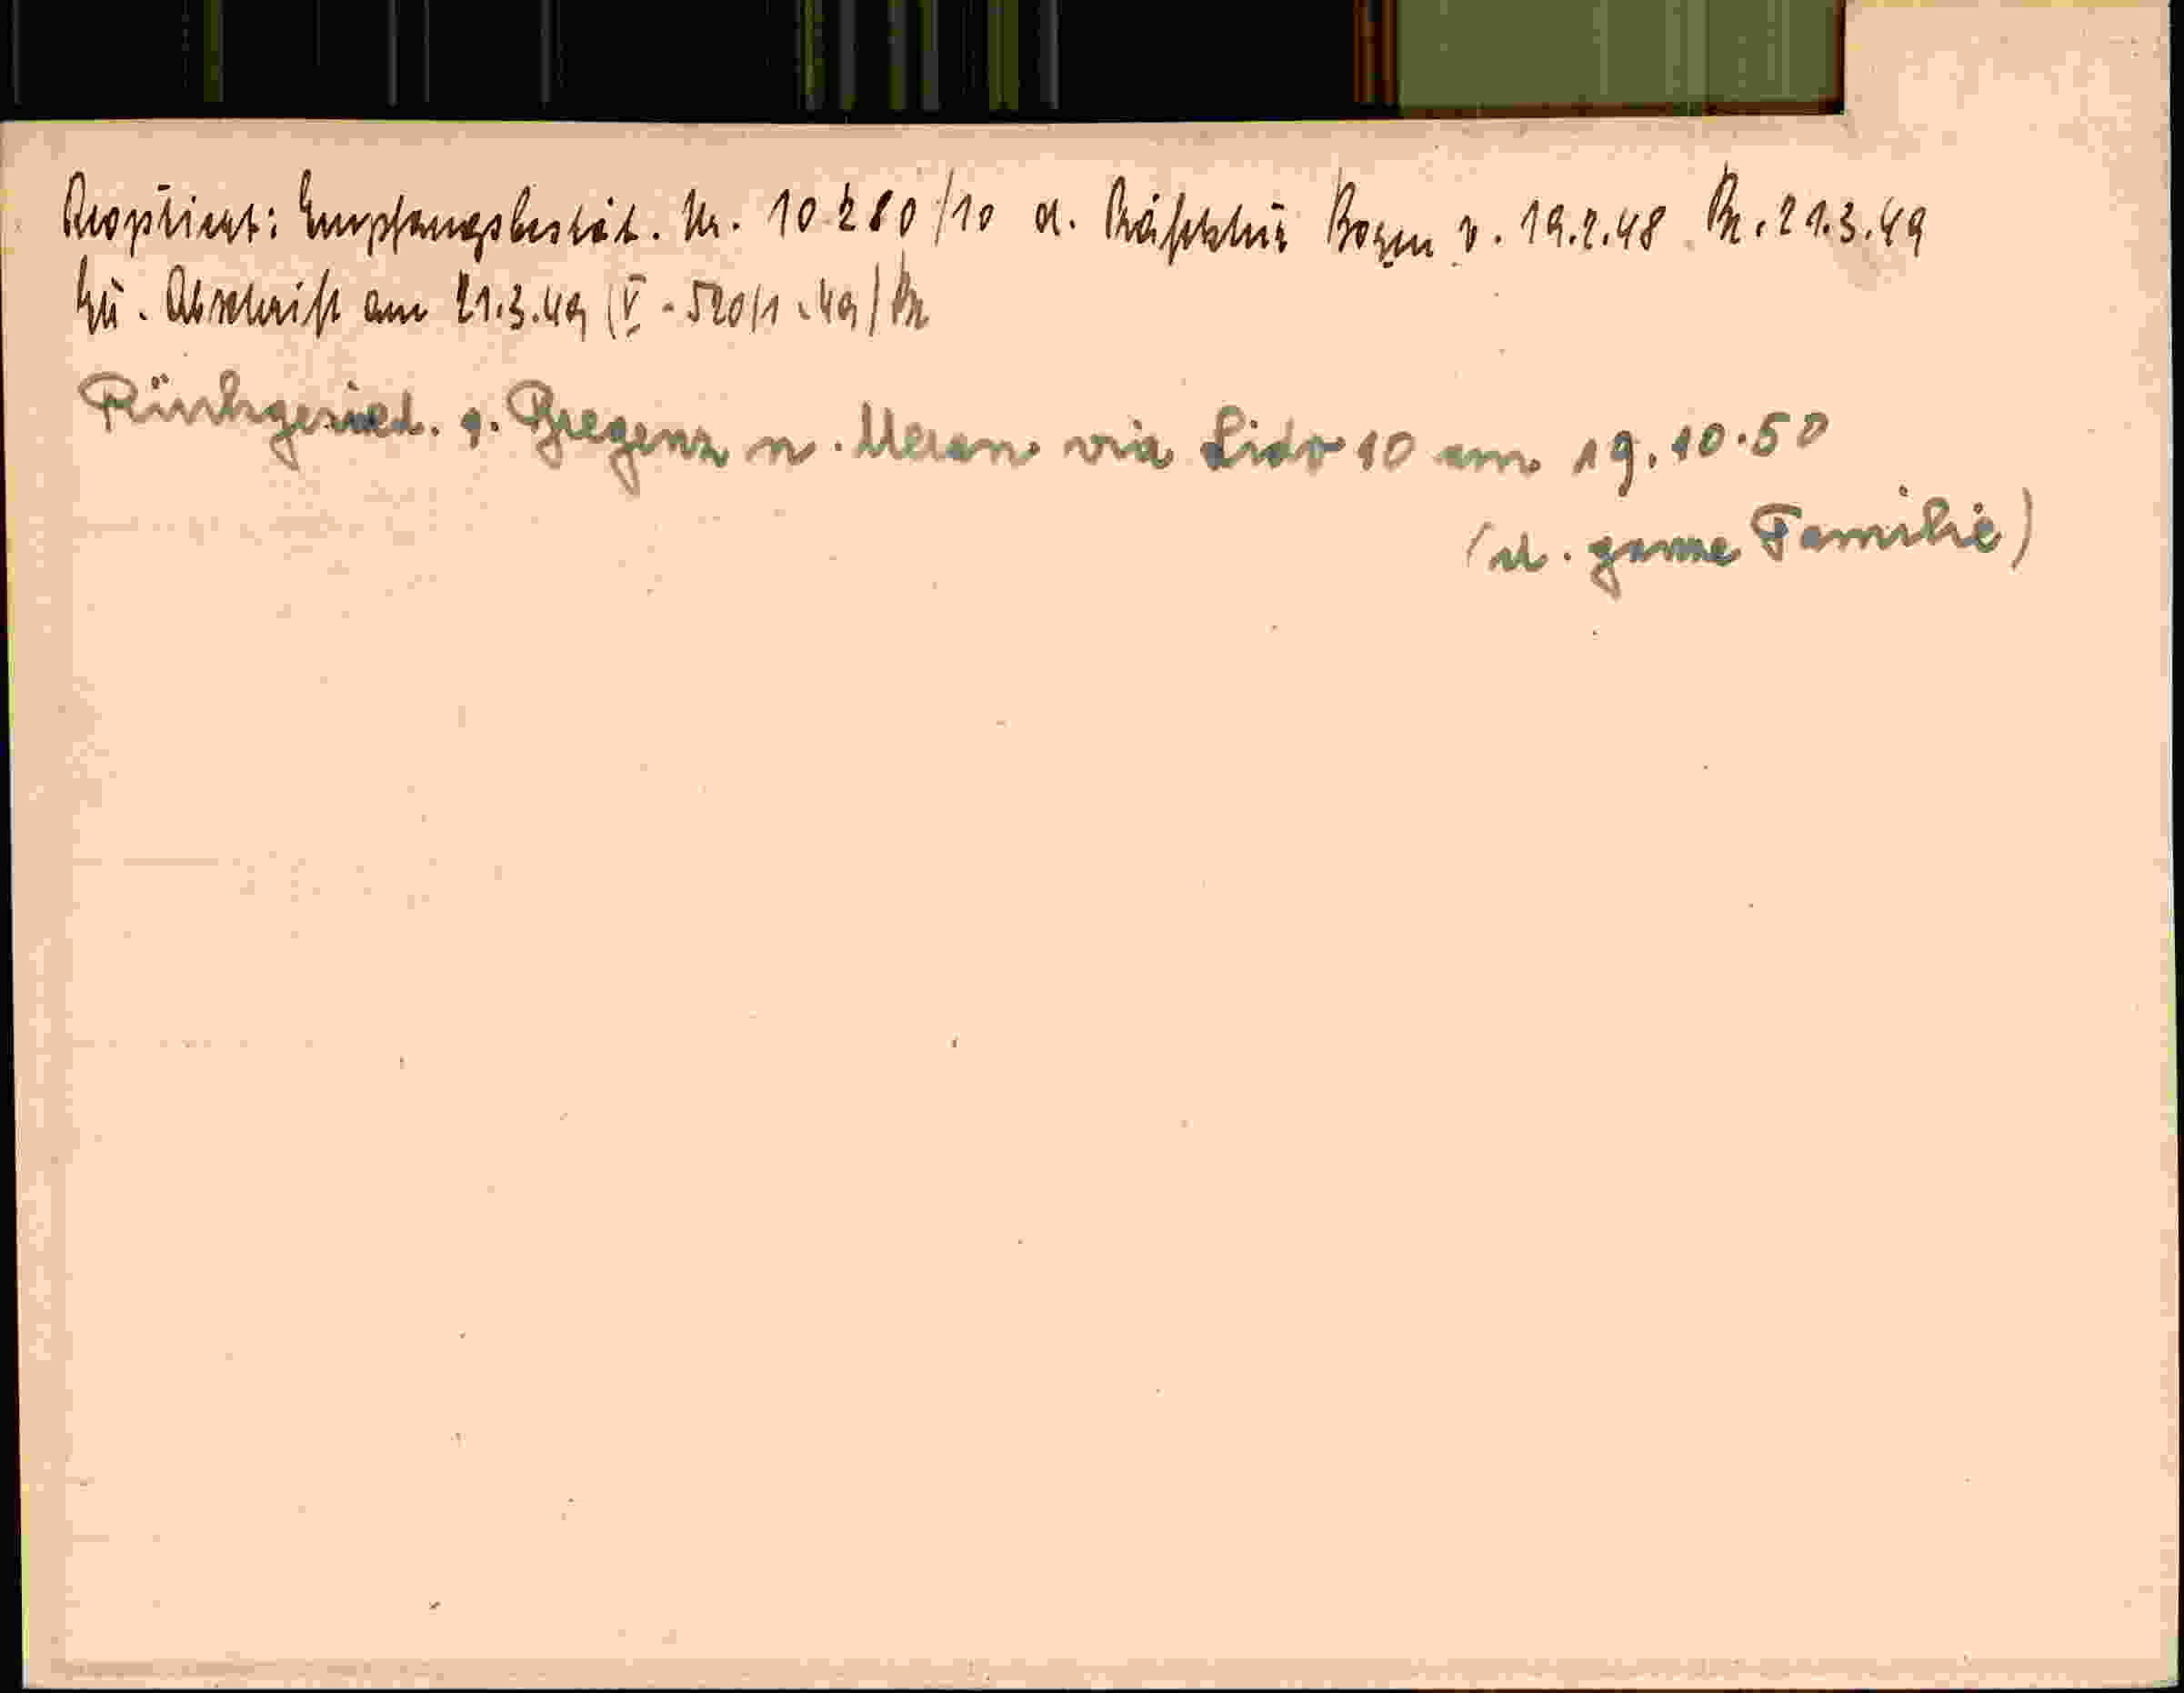 Reoptiert: Empfangsbestät. Nr. 10280/10 d. Präfektur Bozen v. 19.2.48 Pr. 21.3.49
Abschrift am 21.3.49 (V - 520/1 - 49) Pr
Rückgesied. v. Bregenz n. Meran via Lido 10 am 19.10.50
(d. ganze Familie)